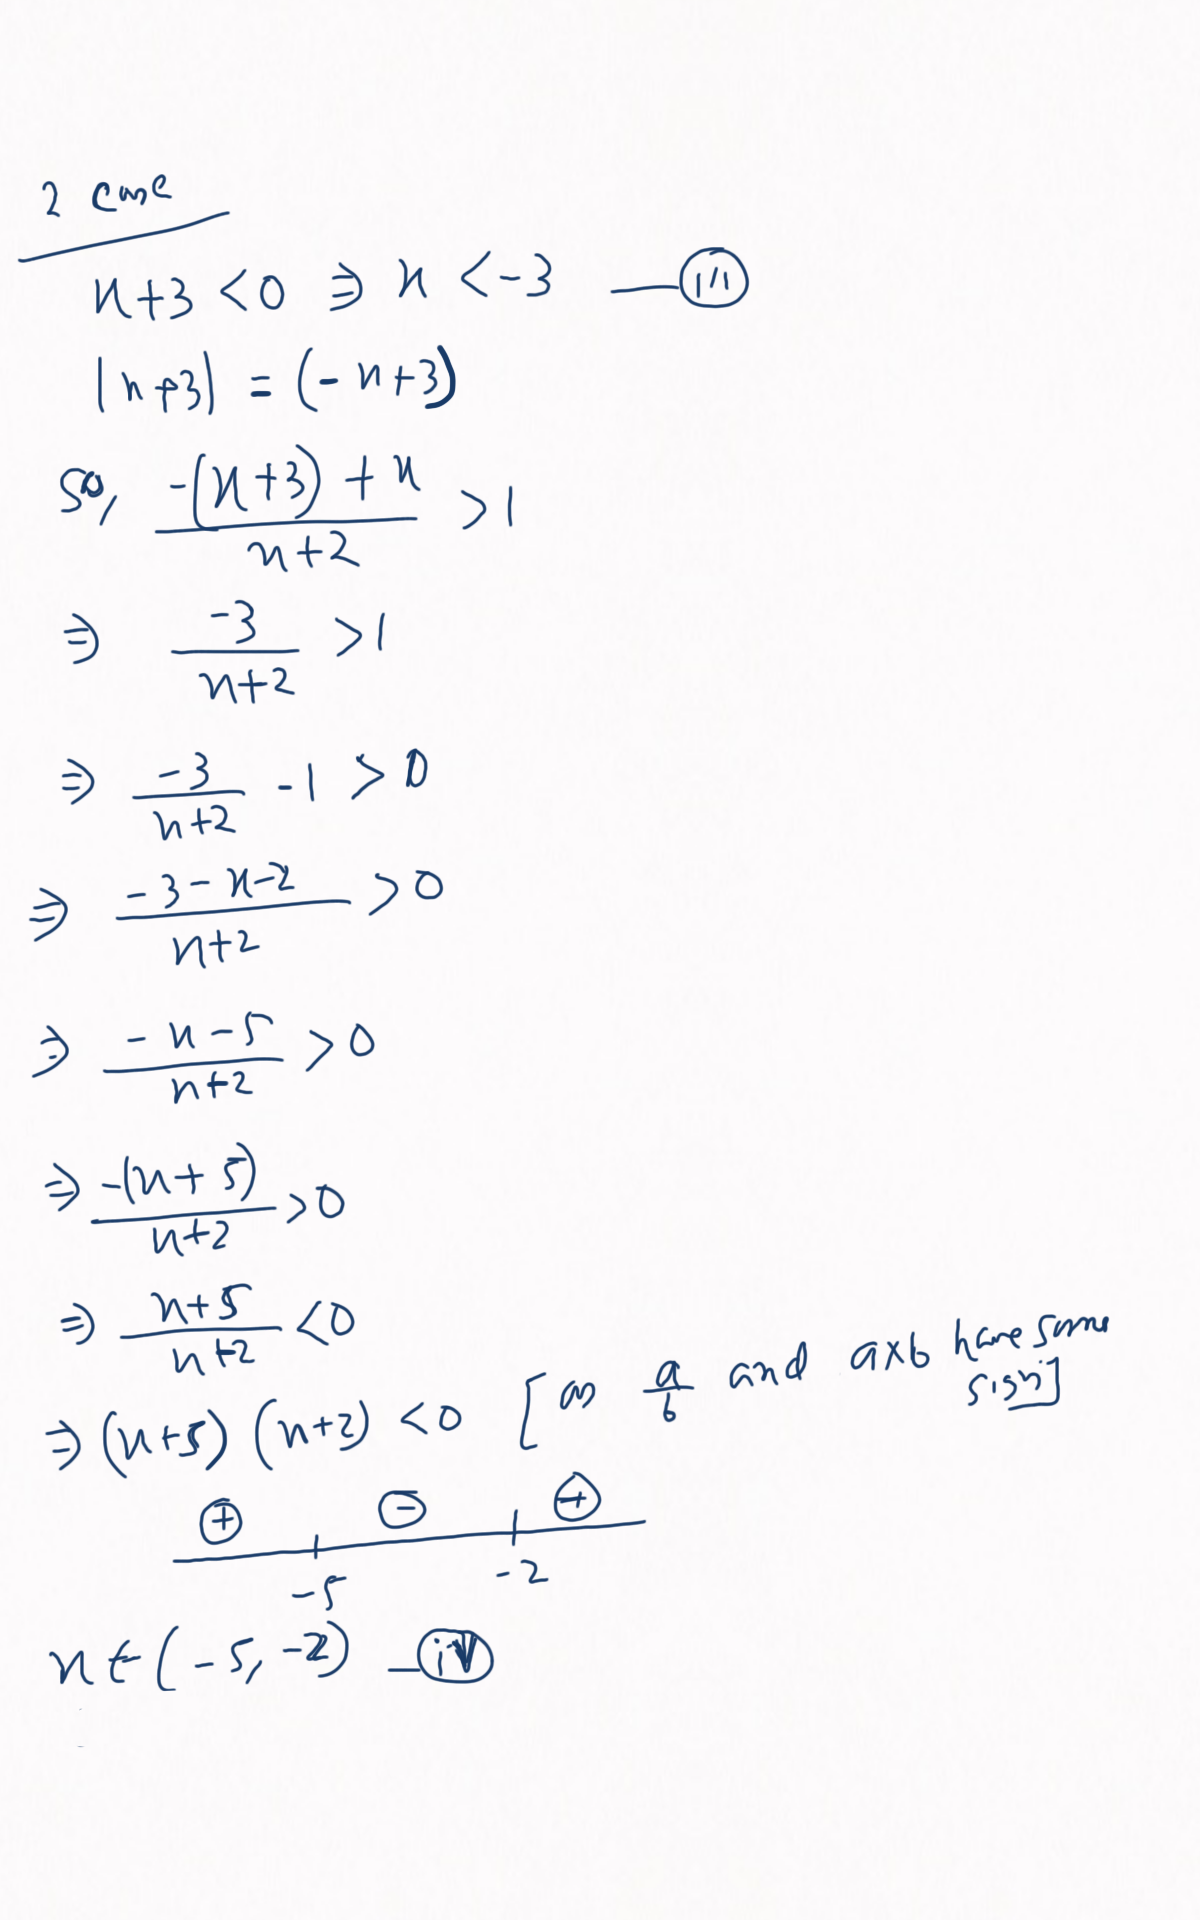 2 case
x+3 <0 ⇒ x <-3 —(iii)
|x+3| = (-x+3)
So, (-(x+3)+x)/(x+2) >1
⇒ -3/(x+2) >1
⇒ -3/(x+2) -1 > 0
⇒ (-3-x-2)/(x+2) >0
⇒ (-x-5)/(x+2) >0
⇒ -(x+5)/(x+2) >0
⇒ (x+5)/(x+2) <0
⇒ (x+5) (x+2) <0 [as a/b and a×b have same sign]
+ - +
-5 -2
x ∈ (-5, -2) —(iv)